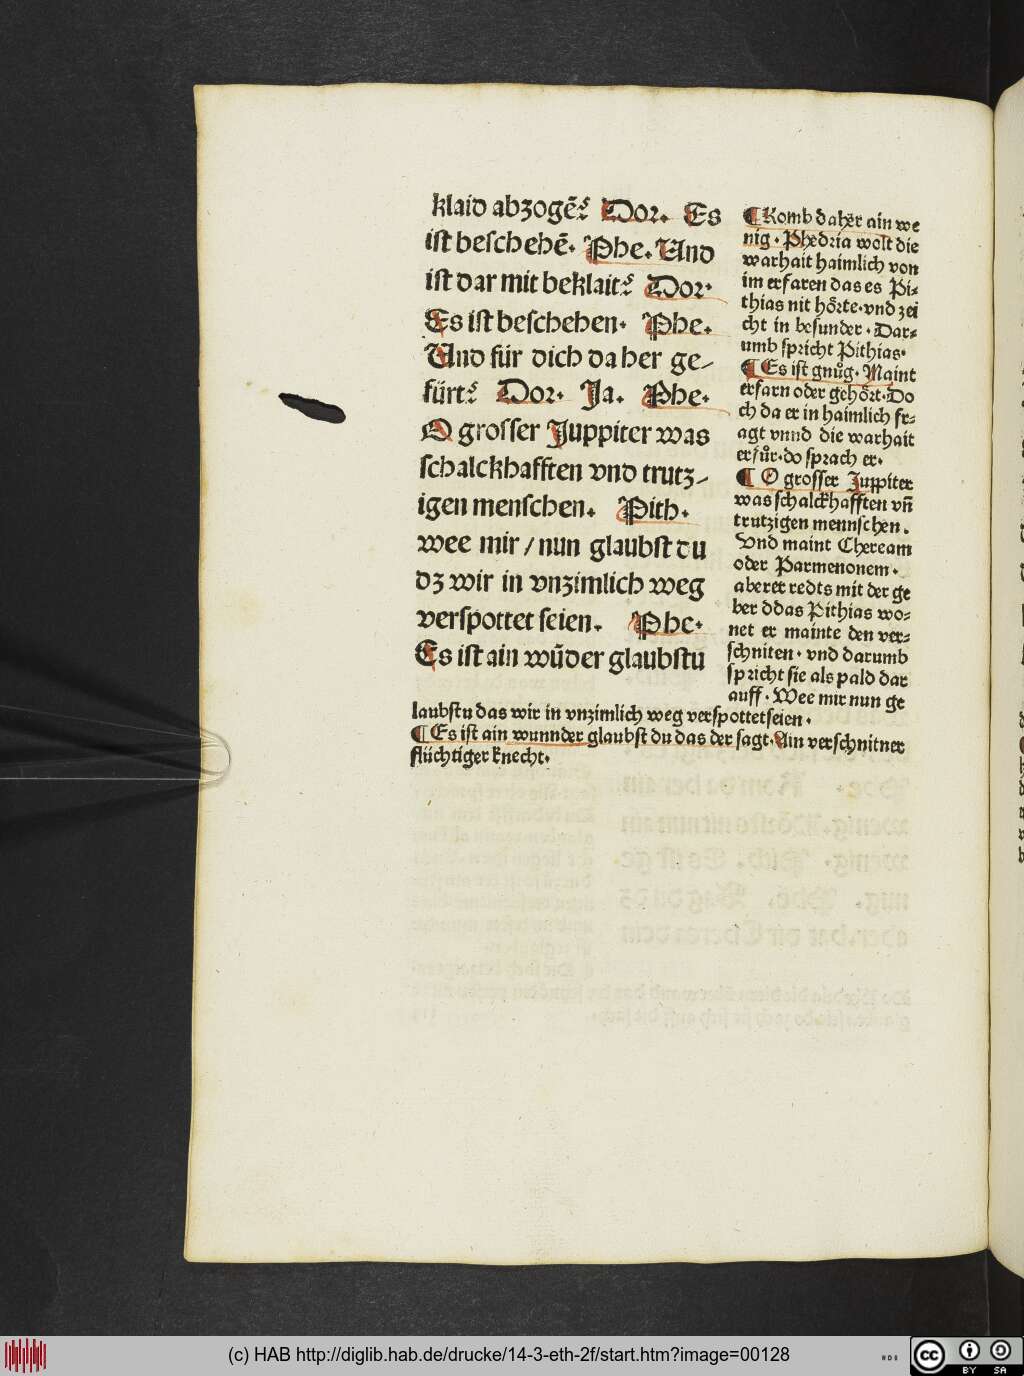 klaid abzogē⸗ Dor. Es
ist beschehē. Phe. Und
ist dar mit beklait⸗ Dor.
Es ist beschehen. Phe.
Und für dich daher ge/
fürt⸗ Dor. Ja. Phe.
O grosser Juppiter was
schalckhafften vnd trutz/
igen menschen. Pith.
wee mir / nun glaubst du
dz wir in vnzimlich weg
verspottet seien. Phe.
Es ist ain wūder glaubstu
¶ Komb dahēr ain we
nig. Phedria wolt die
warhait haimlich von
im erfaren das es Pi⸗
thias nit hōrte. vnd zei
cht in besunder. Dar⸗
umb spricht Pithias.
¶ Es ist gnůg. Maint
erfarn oder gehōrt. Do
ch da er in haimlich fr⸗
agt vnnd die warhait
erfůr. do sprach er.
¶ O grosser Juppiter
was schalckhafften vñ
trutzigen mennschen.
Vnd maint Cheream
oder Parmenonem.
aber er redts mit der ge
ber ddas Pithias wo⸗
net er mainte den ver⸗
schniten. vnd darumb
spricht sie als pald dar
auff. Wee mir nun ge
laubstu das wir in vnzimlich weg verspottet seien.
¶ Es ist ain wunnder glaubst du das der sagt. Ain verschnitner
flüchtiger knecht.
(c) HAB http://diglib.hab.de/drucke/14-3-eth-2f/start.htm?image=00128
cc BY SA